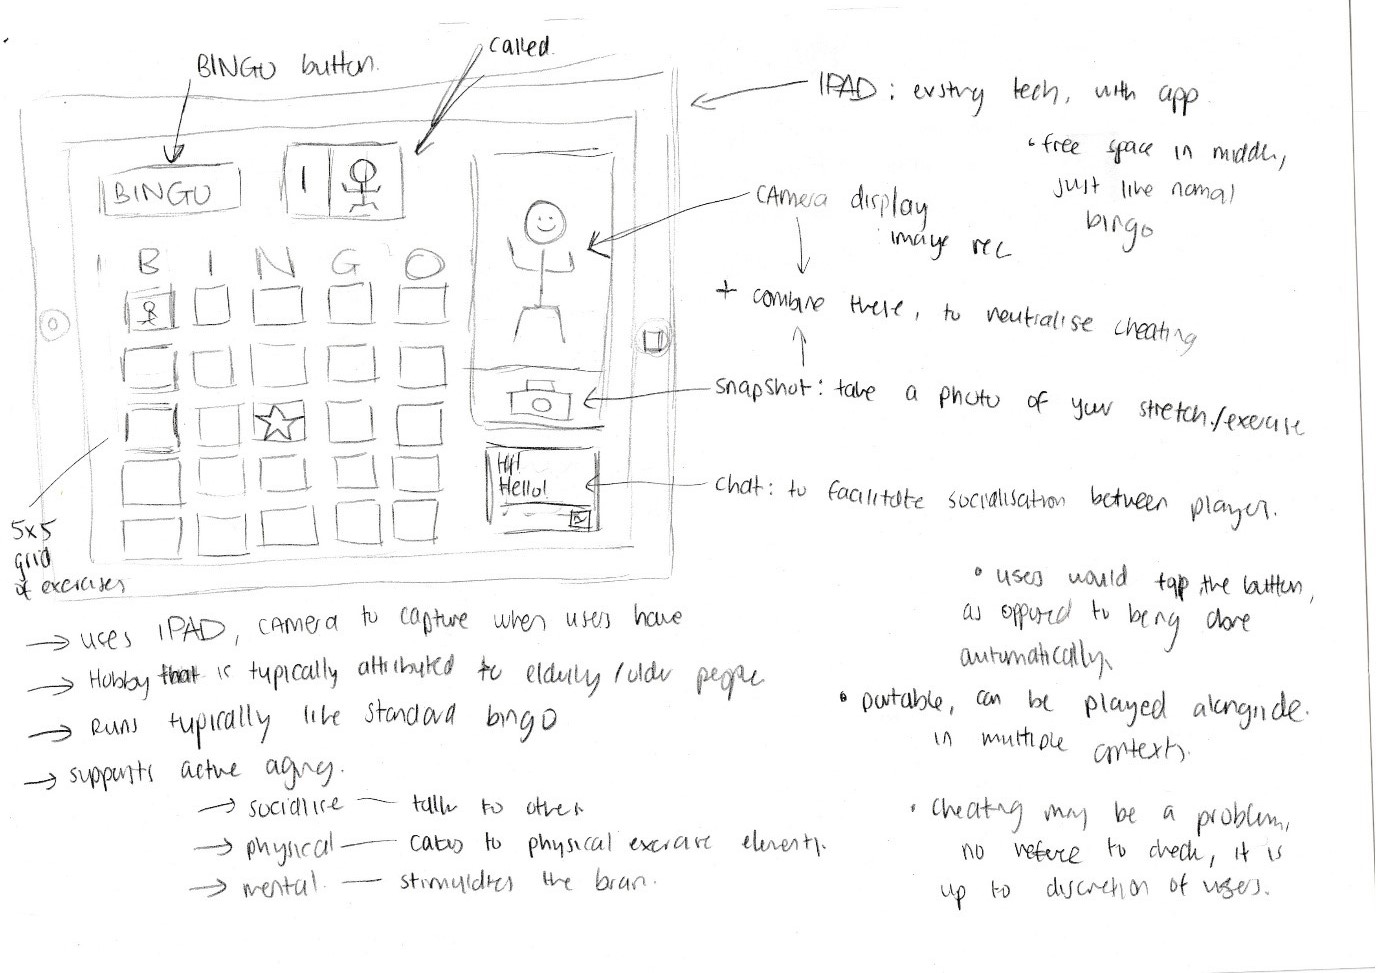 BINGO button.
called
BINGO
1
B I N G O
Hi!
Hello!
5x5
grid
of exercises
IPAD : existing tech, with app
• free space in middle,
just like normal
bingo
camera display
image rec
+ combine these, to neutralise cheating
snapshot : take a photo of your stretch/exercise
chat : to facilitate socialisation between player.
→ uses IPAD, camera to capture when users have
→ Hobby that is typically attributed to elderly/older people
→ Runs typically like standard bingo
→ supports active aging.
→ socialise — talk to other
→ physical — cates to physical exercise elements.
→ mental — stimulates the brain.
• users would tap the button,
as opposed to being done
automatically.
• portable, can be played alongside.
in multiple contexts.
• cheating may be a problem,
no referee to check, it is
up to discretion of users.